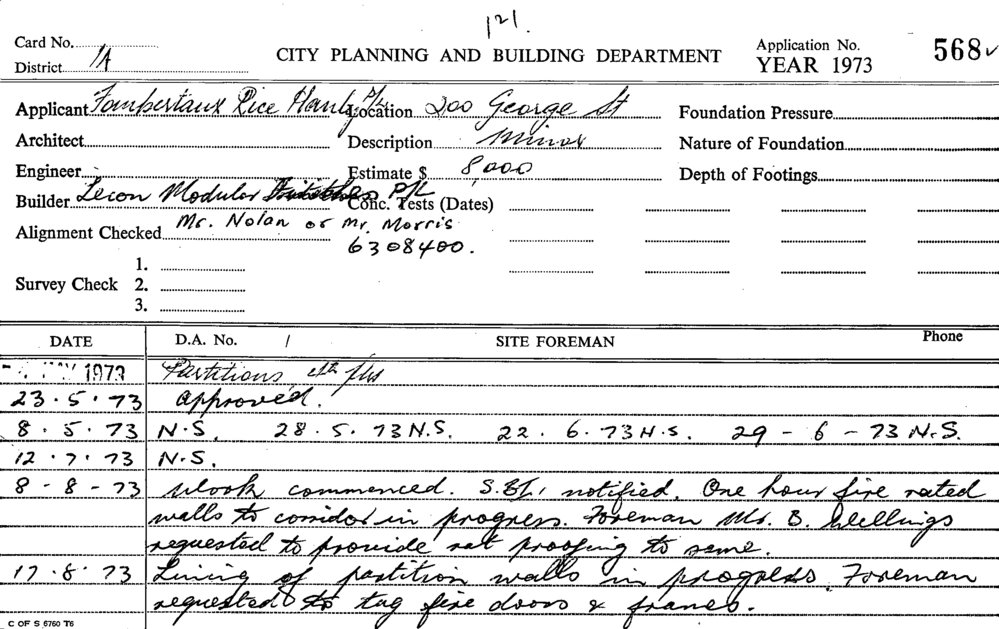 121.
Card No. CITY PLANNING AND BUILDING DEPARTMENT Application No. 568
District 1A YEAR 1973
Applicant Fombertaux Rice Hanly P/L Location 200 George St Foundation Pressure
Architect Description Minor Nature of Foundation
Engineer Estimate $ 8,000 Depth of Footings
Builder Lecon Modular P/L Conc. Tests (Dates)
Alignment Checked Mr. Nolan or Mr. Morris
6308400.
1.
Survey Check 2.
3.
DATE D.A. No. / SITE FOREMAN Phone
MAY 1973 Partitions 4th flr
23.5.73 approved.
8.5.73 N.S. 28.5.73 N.S. 22.6.73 N.S. 29-6-73 N.S.
12.7.73 N.S.
8-8-73 Work commenced. S.B.I. notified. One hour fire rated
walls to corridor in progress. Foreman Mr. B. Wellings
requested to provide rat proofing to same.
17.8.73 Lining of partition walls in progress Foreman
requested to tag fire doors & frames.
C OF S 6760 T6